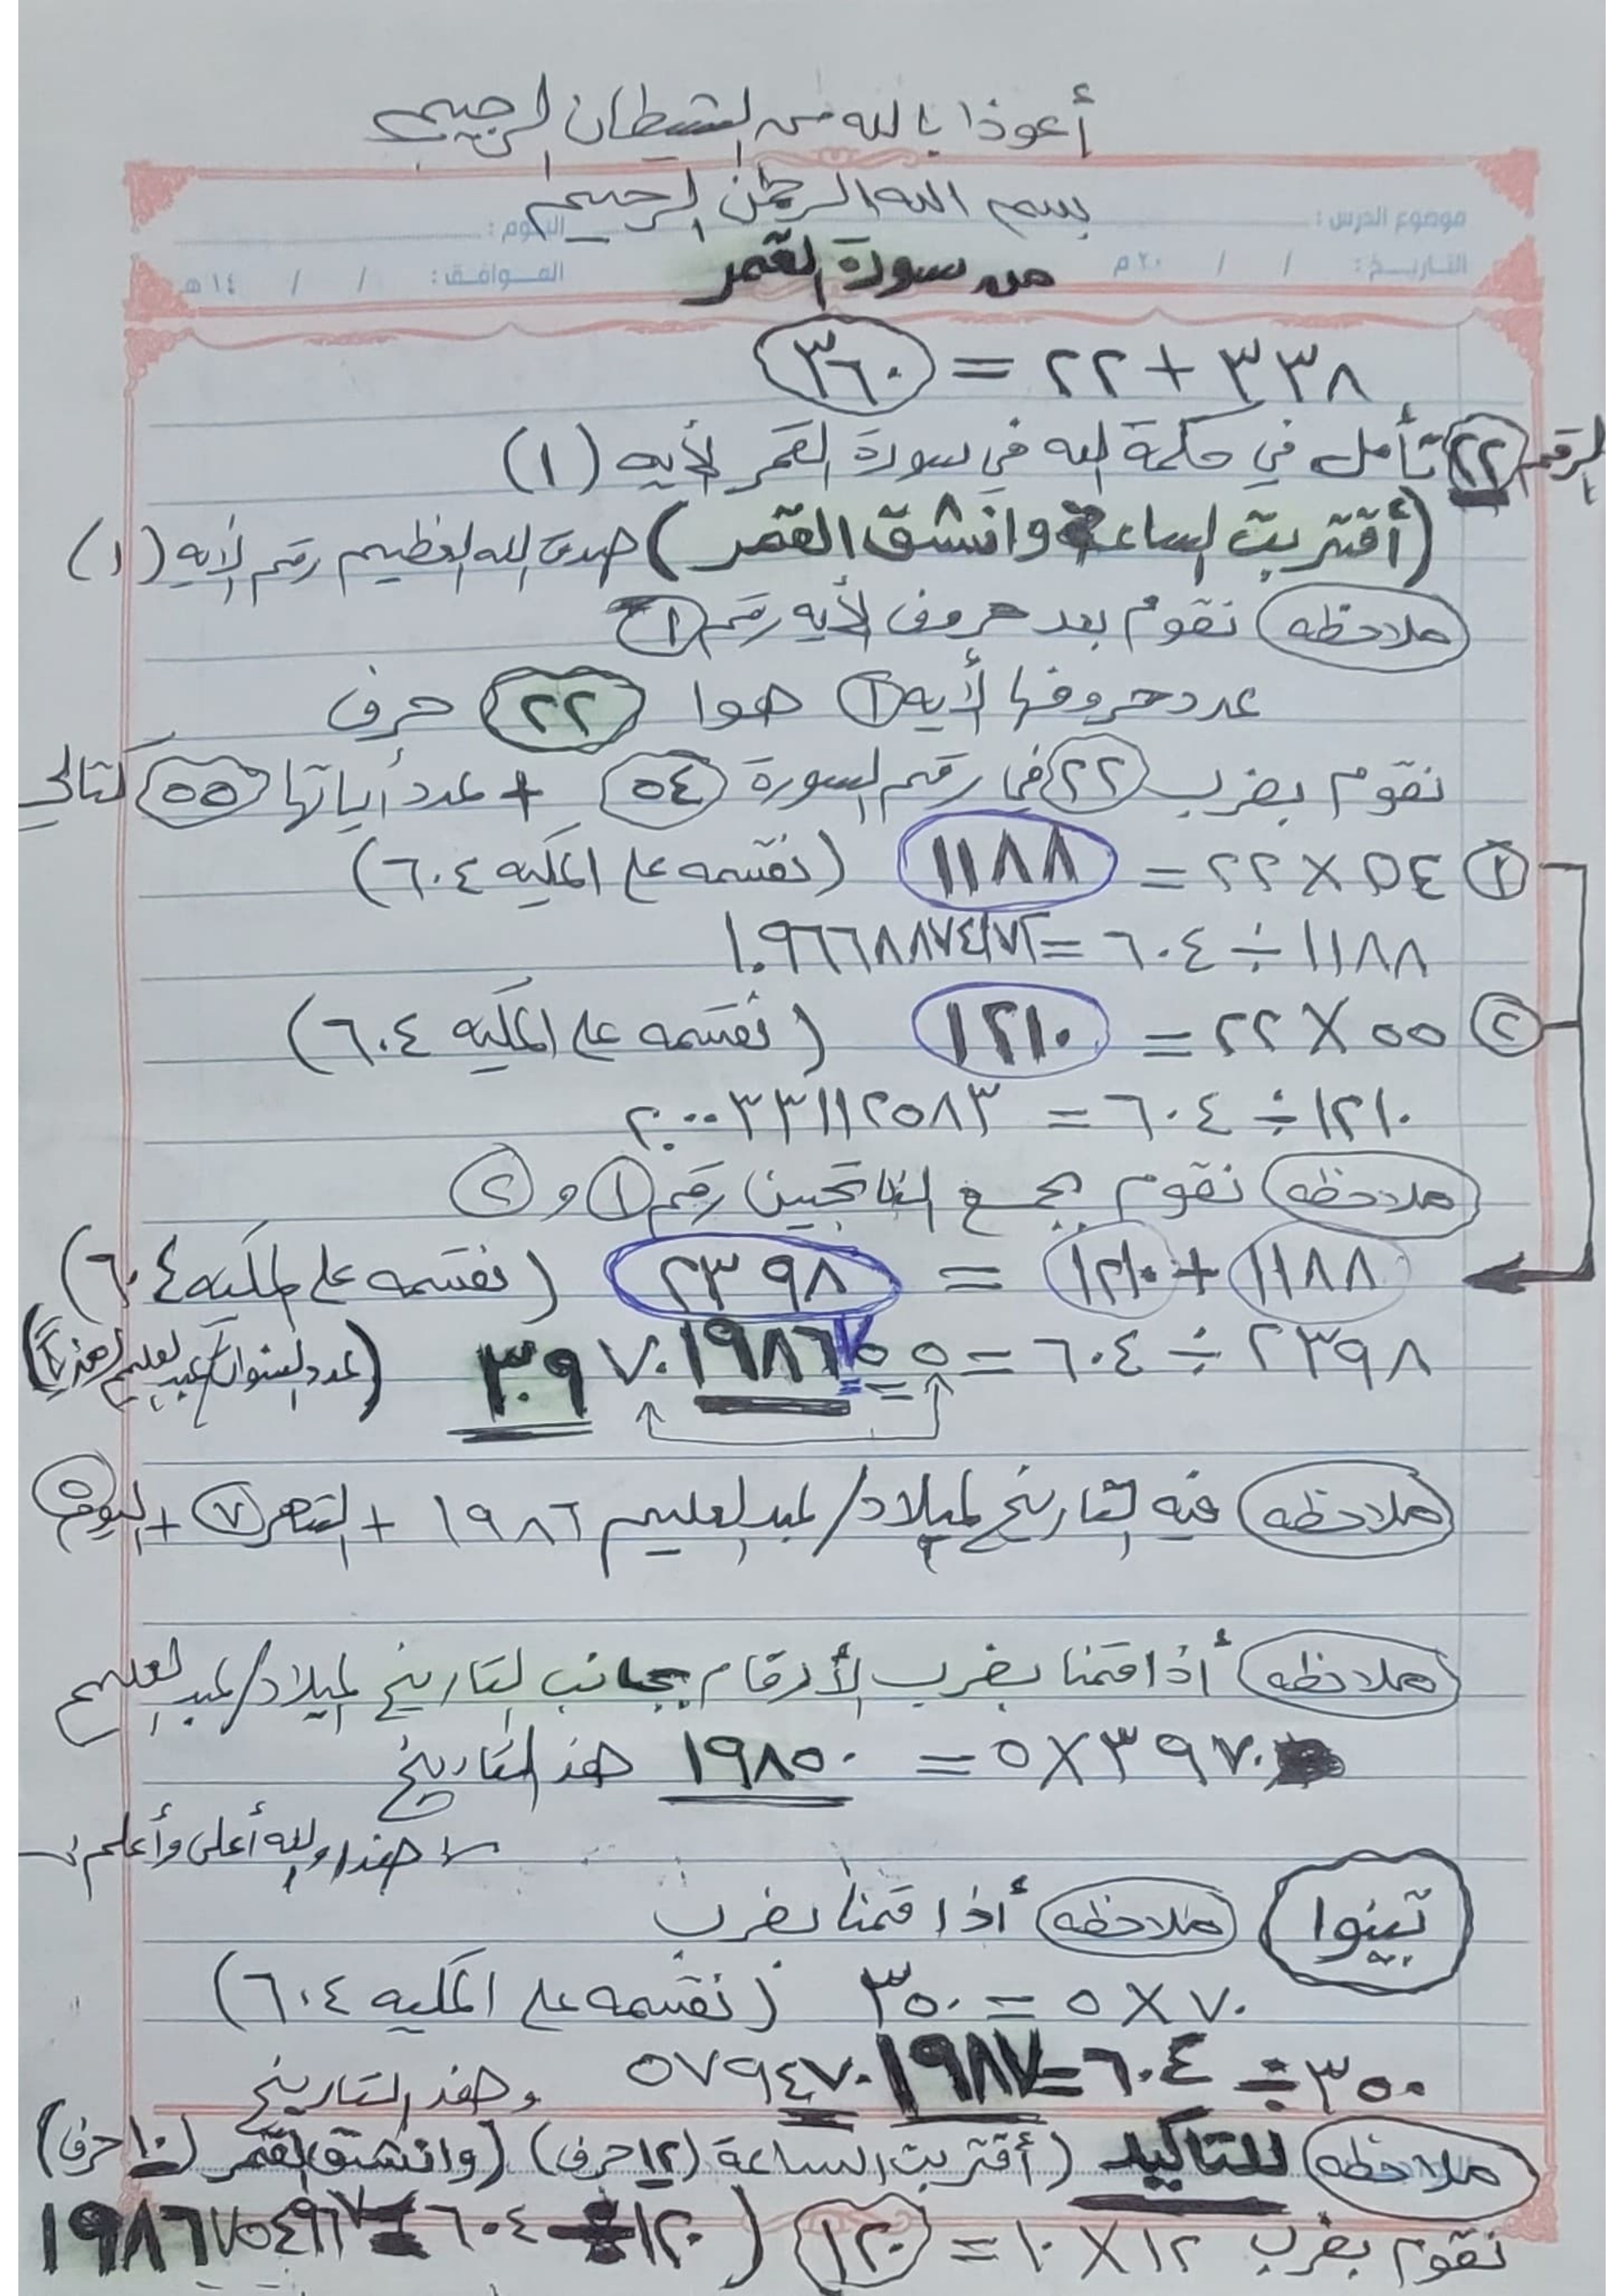 أعوذا بالله من الشيطان الرجيم
بسم الله الرحمن الرحيم
موضوع الدرس : اليوم :
التاريخ : / / ٢٠م الموافق : / / ١٤هـ
من سورة القمر
٣٣٨ + ٢٢ = ٣٦٠
الرقم ٢٢ تأمل في حكمة الله في سورة القمر الأيه (١)
(أقتربت الساعة وانشق القمر) صدق الله العظيم رقم الايه (١)
ملاحظه نقوم بعد حروف الأيه رقم ١
عدد حروفها لأيه ١ هوا ٢٢ حرف
نقوم بضرب ٢٢ في رقم السورة ٥٤ + عدد أياتها ٥٥ كتالي
١ ٥٤ × ٢٢ = ١١٨٨ (نقسمه على المكيه ٦٠٤)
١١٨٨ ÷ ٦٠٤ = ١.٩٦٦٨٨٧٤١٧٢
٢ ٥٥ × ٢٢ = ١٢١٠ (نقسمه على المكيه ٦٠٤)
١٢١٠ ÷ ٦٠٤ = ٢.٠٠٣٣١١٢٥٨٣
ملاحظه نقوم بجمع الناتجين رقم ١ و ٢
١١٨٨ + ١٢١٠ = ٢٣٩٨ (نقسمه على المكيه ٦٠٤)
٢٣٩٨ ÷ ٦٠٤ = ٣.٩٧٠١٩٨٦٧٥٥ (عدد السنوات عبدالعليم هذي)
ملاحظه فيه التاريخ لميلاد/عبدالعليم ١٩٨٦ + الشهر ٧ + اليوم ٥
ملاحظه أذا قمنا بضرب الأرقام بجانب التاريخ لميلاد/عبدالعليم
٣٩٧٠ × ٥ = ١٩٨٥٠ هذ التاريخ
هذا والله أعلى وأعلم
تبينوا ملاحظه أذا قمنا بضرب
٧٠ × ٥ = ٣٥٠ (نقسمه على المكيه ٦٠٤)
٣٥٠ ÷ ٦٠٤ = ٠.٥٧٩٤٧٠١٩٨٧ وهذ التاريخ
ملاحظه للتاكيد (أقتربت الساعة (١٢حرف) (وانشق القمر (١٠حرف)
نقوم بضرب ١٢ × ١٠ = ١٢٠ ( ١٢٠ ÷ ٦٠٤ = ١٩٨٦٧٥٤٩٦٧